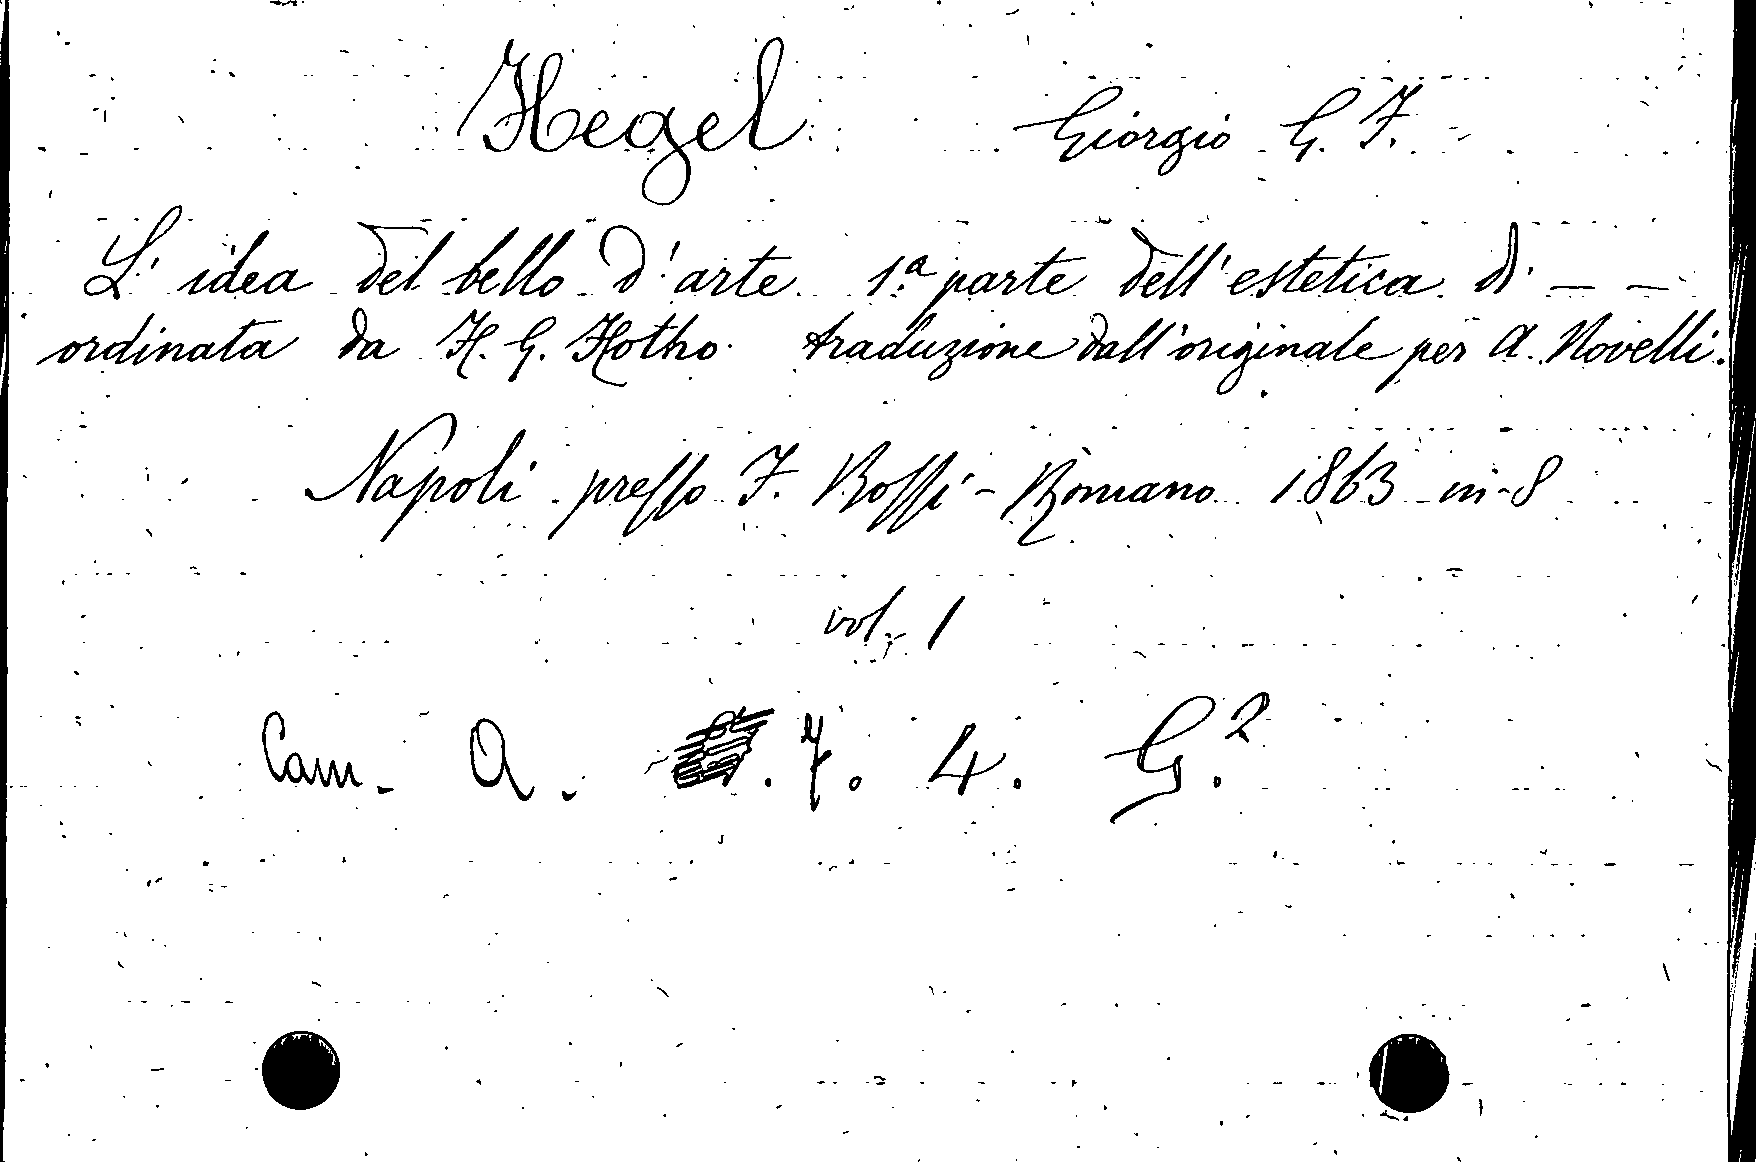 Hegel Giorgio G. F.
L'idea del bello d'arte 1ª parte dell'estetica di — —
ordinata da H. G. Hotho. traduzione dall'originale per A. Novelli.
Napoli presso F. Rossi-Romano 1863 in-8
vol. 1
Cam. A. 7. 4. G.²